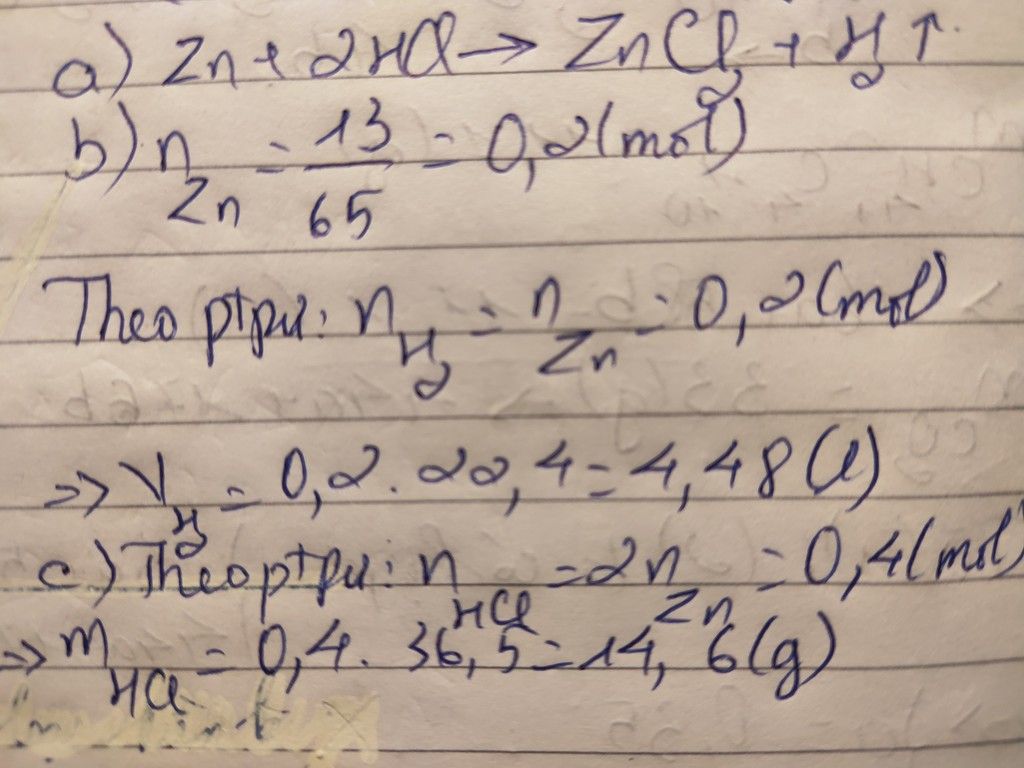 a) Zn + 2HCl → ZnCl₂ + H₂ ↑.
b) n_Zn = 13/65 = 0,2 (mol)
Theo ptpư: n_H₂ = n_Zn = 0,2 (mol)
=> V_H₂ = 0,2 . 22,4 = 4,48 (l)
c) Theo ptpư: n_HCl = 2n_Zn = 0,4 (mol)
=> m_HCl = 0,4 . 36,5 = 14,6 (g)